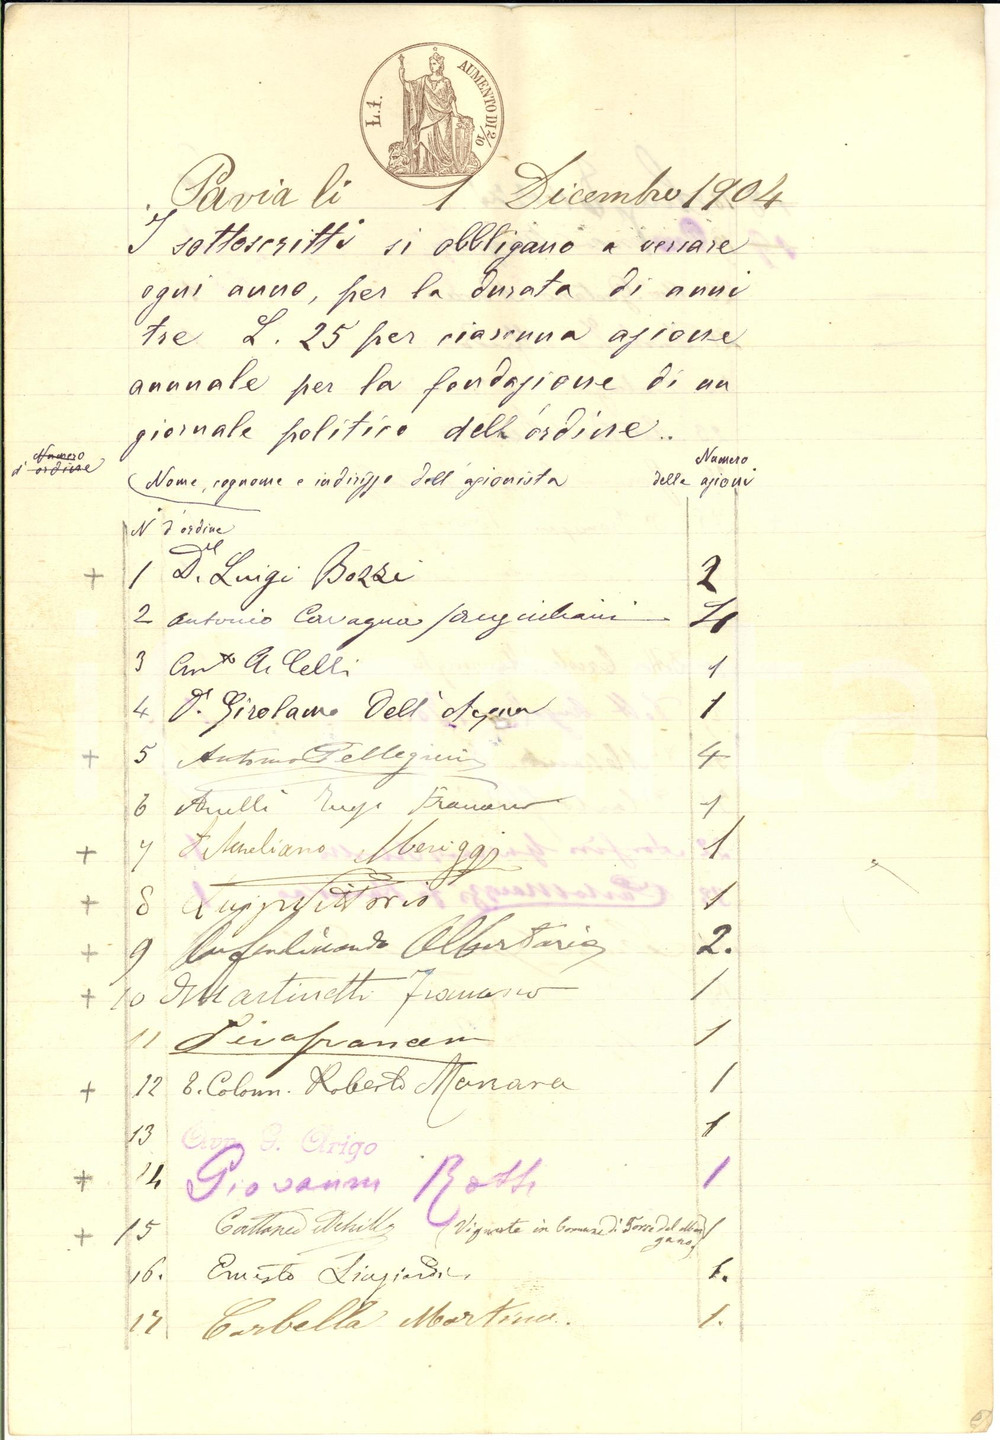 L.1.
AUMENTO DI 2/10
Pavia li 1 Dicembre 1904
I sottoscritti si obbligano a versare
ogni anno, per la durata di anni
tre L. 25 per ciascuna azione
annuale per la fondazione di un
giornale politico dell'ordine..
Numero
d'ordine
Nome, cognome e indirizzo dell'azionista
Numero
delle azioni
N° d'ordine
+ 1 Dr. Luigi Bozzi 2
2 Antonio Cavagna Sangiuliani 4
3 1
4 Dr. Girolamo Dell'Acqua 1
+ 5 Antonio Pellegrini 4
6 Anelli Luigi Francesco 1
+ 7 Aureliano Meriggi 1
+ 8 Luigi Vittorio 1
+ 9 Ferdinando Albertario 2.
+ 10 Martinetti Francesco 1
11 Piva Francesco 1
+ 12 T. Colonn. Roberto Manara 1
13 Avv. G. Arigo 1
+ 14 Giovanni Roth 1
+ 15 Cattaneo Achille (Vigente in Comune di Torre del Mangano) 1
16. Ernesto 1.
17 Corbella Martino. 1.